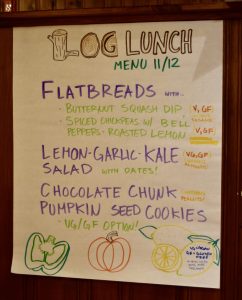 LOG LUNCH
MENU 11/12
FLATBREADS WITH...
· BUTTERNUT SQUASH DIP V, GF
· SPICED CHICKPEAS W/ BELL
PEPPERS + ROASTED LEMON V, GF
LEMON-GARLIC-KALE VG, GF
SALAD WITH DATES!
CHOCOLATE CHUNK
PUMPKIN SEED COOKIES
· VG/GF OPTION!